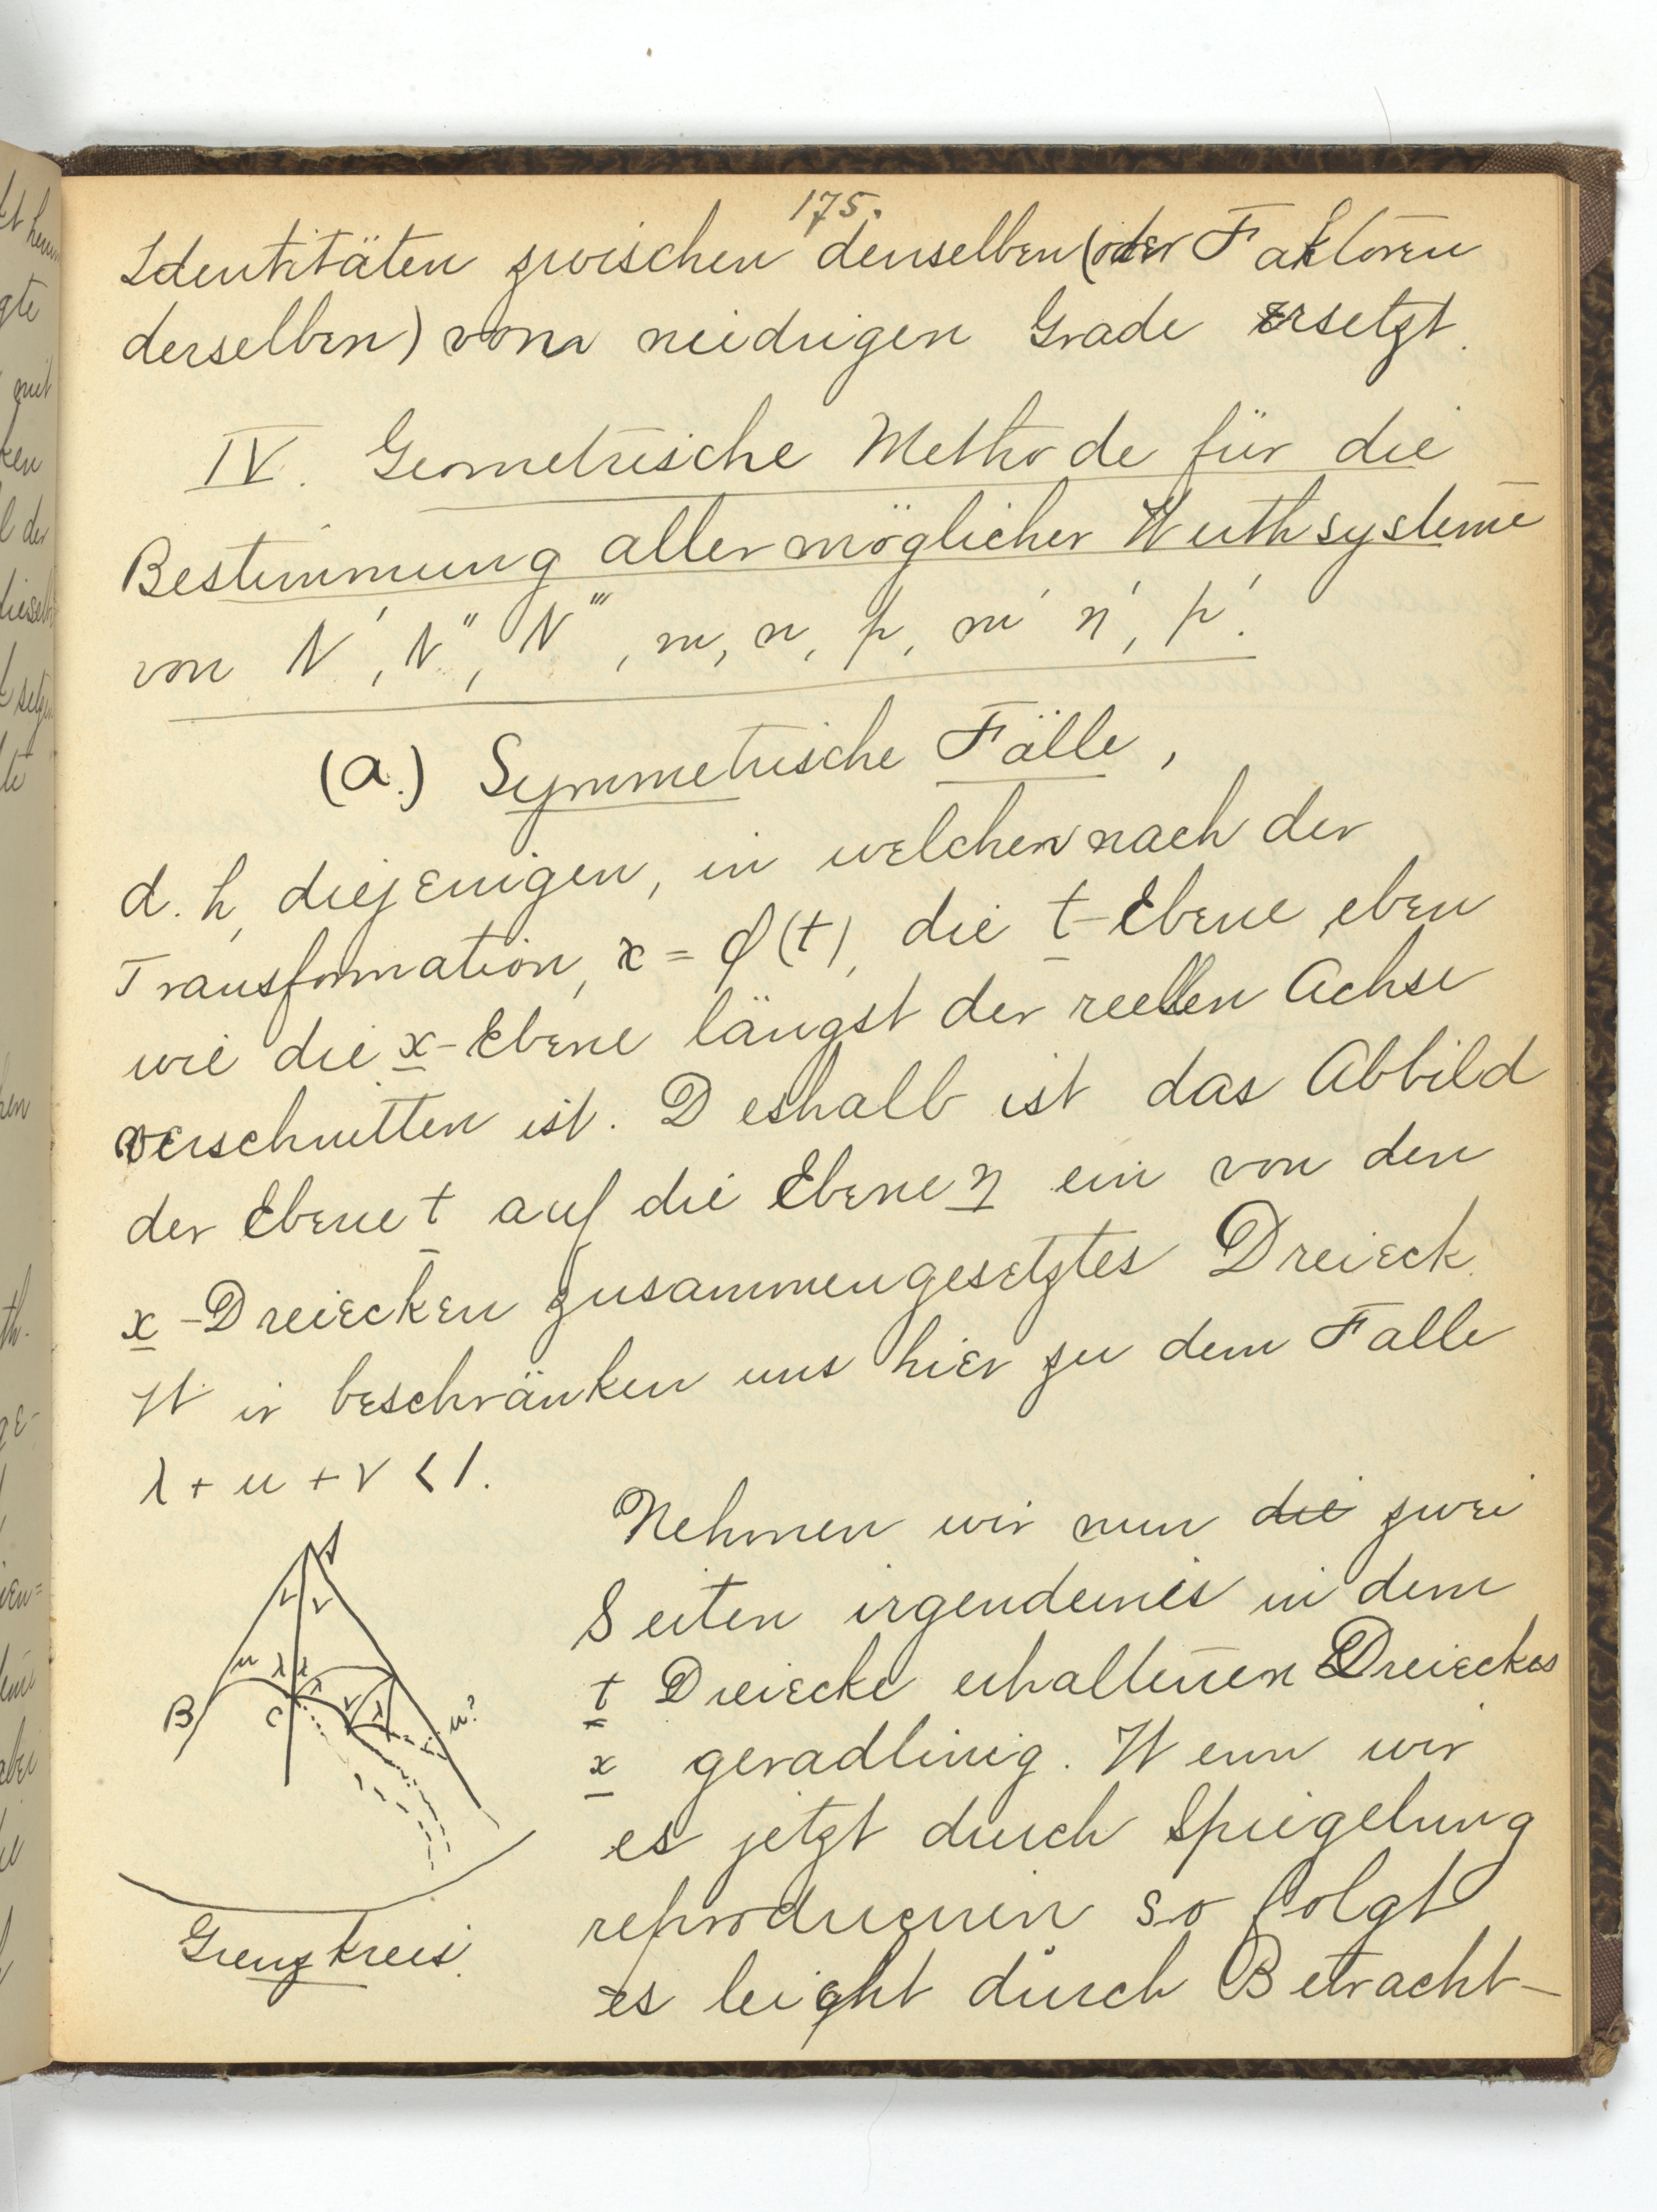 175.
Identitäten zwischen denselben (oder Faktoren
derselben) vom neidrigen Grade ersetzt.
IV. Geometrische Methode für die
Bestimmung aller möglicher Werthsysteme
von N', N'', N''', m, n, p, m' n', p'.
(a.) Symmetrische Fälle,
d. h, diejenigen, in welchen nach der
Transformation, x = φ(t), die t-Ebene, eben
wie die x-Ebene längst der reellen Achse
verschnitten ist. Deshalb ist das Abbild
der Ebene t auf die Ebene η ein von den
x-Dreiecken zusammengesetztes Dreieck.
Wir beschränken uns hier zu dem Falle
λ + μ + ν < 1.
Nehmen wir nun die zwei
Seiten irgendeines in dem
t Dreiecke erhaltenen Dreieckes
x geradlinig. Wenn wir
es jetzt durch Spiegelung
reproducirin so folgt
es leicht durch Betracht-
A
ν ν
μ λ λ
λ ν λ
μ?
B
C
Grenzkreis.